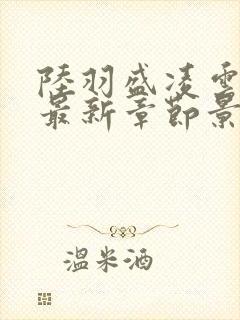 陸羽盛凌雲
最新章節景
溫米酒